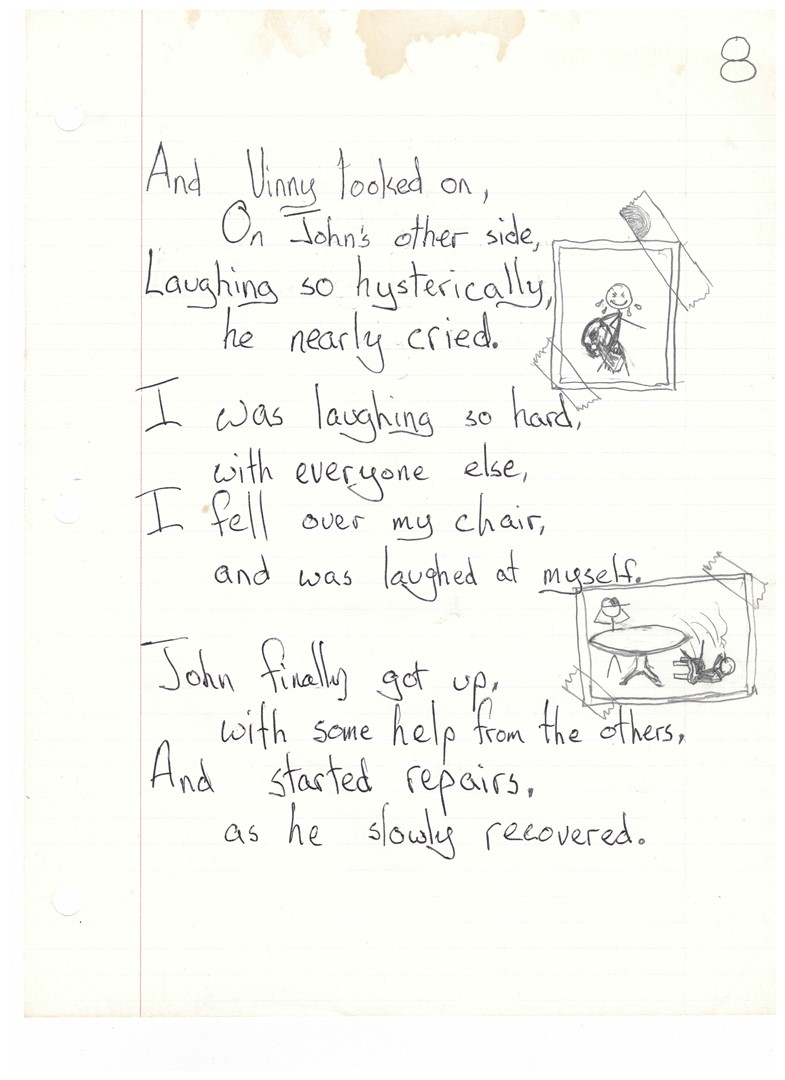 8
And Vinny looked on,
On John's other side,
Laughing so hysterically,
he nearly cried.
I was laughing so hard,
with everyone else,
I fell over my chair,
and was laughed at myself.
John finally got up,
with some help from the others,
And started repairs,
as he slowly recovered.